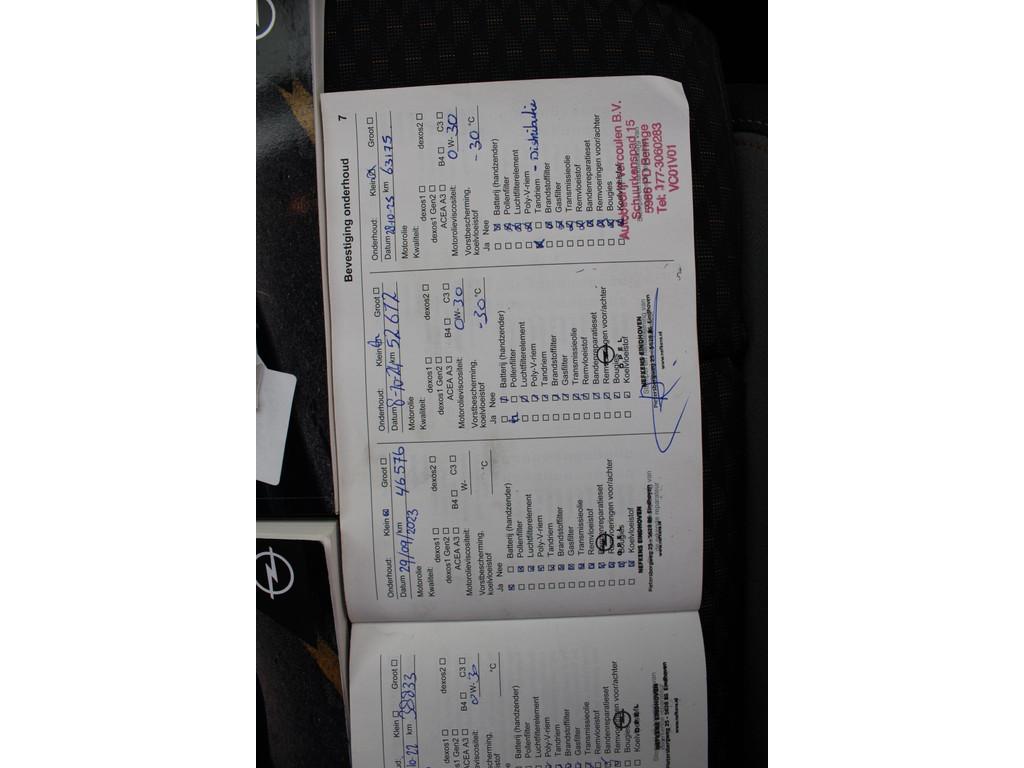 Bevestiging onderhoud
7
Onderhoud: Klein Groot
Datum 29/09/2023 km 46576
Motorolie
Kwaliteit: dexos1 dexos2
dexos1 Gen2
ACEA A3 B4 C3
Motorolieviscositeit: W-
Vorstbescherming,
koelvloeistof °C
Ja Nee
Batterij (handzender)
Pollenfilter
Luchtfilterelement
Poly-V-riem
Tandriem
Brandstoffilter
Gasfilter
Transmissieolie
Remvloeistof
Bandenreparatieset
Remvoeringen voor/achter
Bougies
Koelvloeistof
NEFKENS EINDHOVEN
OPEL
Pietersbergweg 25 - 5628 BS Eindhoven
www.nefkens.nl
Onderhoud: Klein Groot
Datum 8-10-24 km 52672
Motorolie
Kwaliteit: dexos1 dexos2
dexos1 Gen2
ACEA A3 B4 C3
Motorolieviscositeit: 0W-30
Vorstbescherming,
koelvloeistof -30 °C
Ja Nee
Batterij (handzender)
Pollenfilter
Luchtfilterelement
Poly-V-riem
Tandriem
Brandstoffilter
Gasfilter
Transmissieolie
Remvloeistof
Bandenreparatieset
Remvoeringen voor/achter
Bougies
Koelvloeistof
NEFKENS EINDHOVEN
OPEL
www.nefkens.nl
Onderhoud: Klein Groot
Datum 28-10-25 km 63175
Motorolie
Kwaliteit: dexos1 dexos2
dexos1 Gen2
ACEA A3 B4 C3
Motorolieviscositeit: 0W-30
Vorstbescherming,
koelvloeistof -30 °C
Ja Nee
Batterij (handzender)
Pollenfilter
Luchtfilterelement
Poly-V-riem
Tandriem - Distributie
Brandstoffilter
Gasfilter
Transmissieolie
Remvloeistof
Bandenreparatieset
Remvoeringen voor/achter
Bougies
Koelvloeistof
Autobedrijf Vercoulen B.V.
Schuurkenspad 15
5986 PD Beringe
Tel. 077-3060283
VC01V01
Klein Groot
10-22 km 38833
dexos1 dexos2
Gen2
ACEA A3 B4 C3
0W-30
°C
Batterij (handzender)
Pollenfilter
Luchtfilterelement
Poly-V-riem
Tandriem
Brandstoffilter
Gasfilter
Transmissieolie
Remvloeistof
Bandenreparatieset
Remvoeringen voor/achter
Bougies
NEFKENS EINDHOVEN
OPEL
Pietersbergweg 25 - 5628 BS Eindhoven
www.nefkens.nl